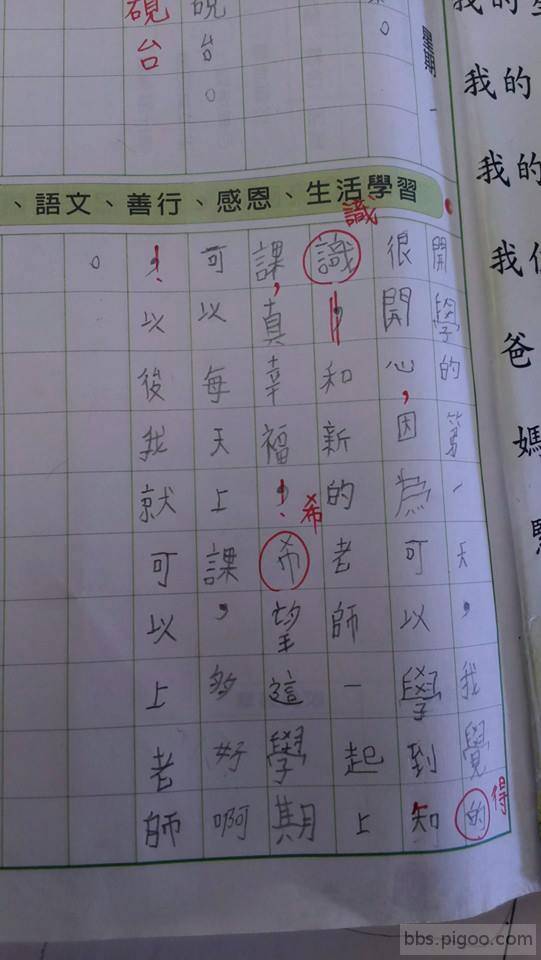 我的
我的
我的
我
爸
媽
星期一
。
硯台。
硯台
、語文、善行、感恩、生活學習
開學的第一天，我覺的
得
很開心，因為可以學到知
識，和新的老師一起上
識
課，真幸福！希望這學期
希
可以每天上課，多好啊
！以後我就可以上老師
。
bbs.pigoo.com